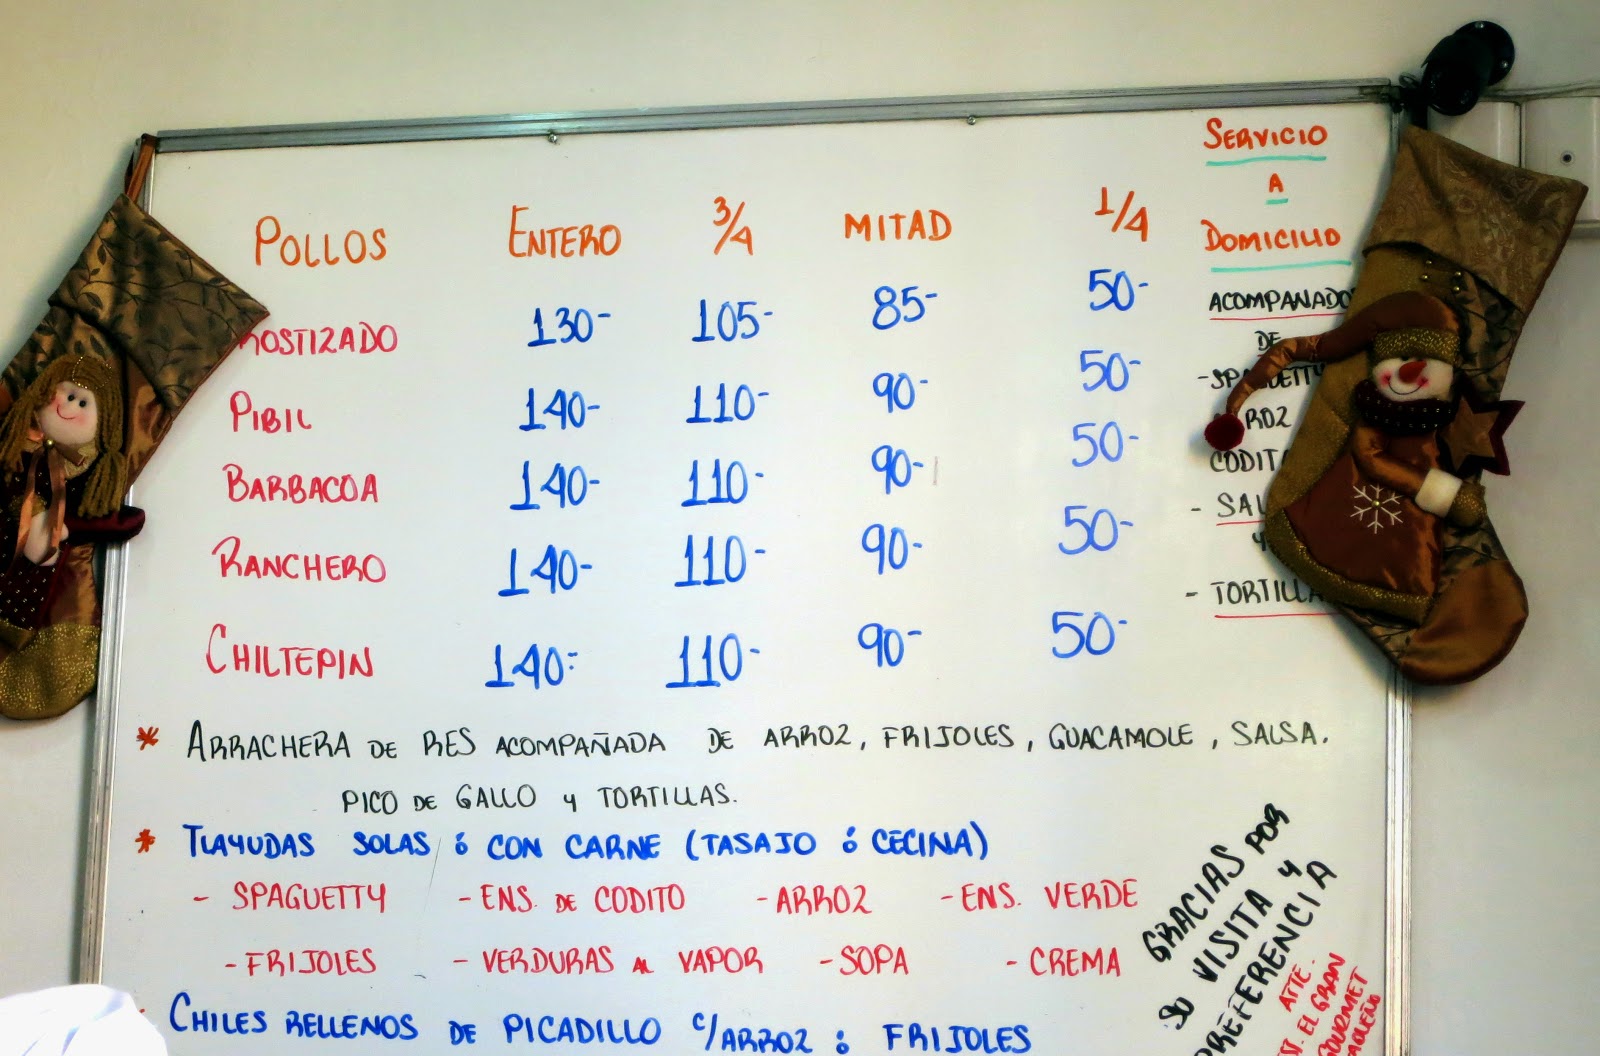 POLLOS ENTERO 3/4 MITAD 1/4
ROSTIZADO 130- 105- 85- 50-
PIBIL 140- 110- 90- 50-
BARBACOA 140- 110- 90- 50-
RANCHERO 140- 110- 90- 50-
CHILTEPIN 140- 110- 90- 50-
SERVICIO
A
DOMICILIO
ACOMPAÑADO
DE
- SPAGUETTY
CODITO
- SAL
Y
- TORTILLA
* ARRACHERA DE RES ACOMPAÑADA DE ARROZ, FRIJOLES, GUACAMOLE, SALSA.
PICO DE GALLO Y TORTILLAS.
* TLAYUDAS SOLAS ó CON CARNE (TASAJO ó CECINA)
- SPAGUETTY - ENS. DE CODITO - ARROZ - ENS. VERDE
- FRIJOLES - VERDURAS AL VAPOR - SOPA - CREMA
CHILES RELLENOS DE PICADILLO C/ARROZ ó FRIJOLES
GRACIAS POR
SU VISITA Y
PREFERENCIA
ATTE.
EL GRAN
GOURMET